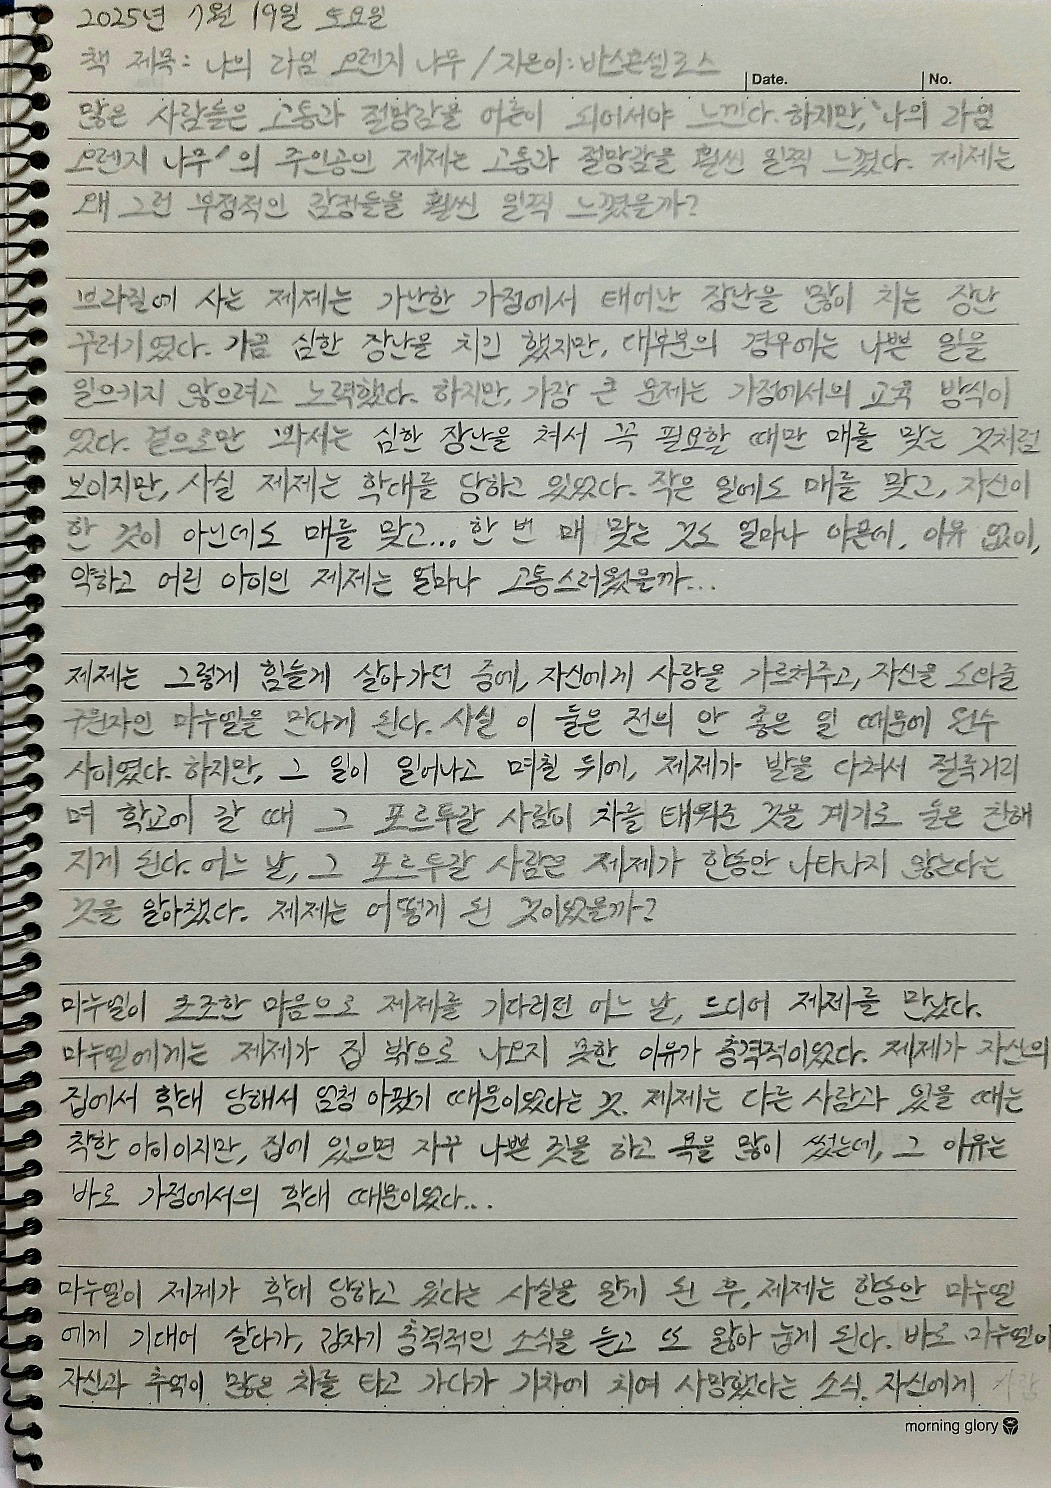 2025년 7월 19일 토요일
책 제목: 나의 라임 오렌지 나무 / 지은이: 바스콘셀로스
Date. No.
많은 사람들은 고통과 절망감을 어른이 되어서야 느낀다. 하지만, '나의 라임
오렌지 나무'의 주인공인 제제는 고통과 절망감을 훨씬 일찍 느꼈다. 제제는
왜 그런 부정적인 감정들을 훨씬 일찍 느꼈을까?
브라질에 사는 제제는 가난한 가정에서 태어난 장난을 많이 치는 장난
꾸러기였다. 가끔 심한 장난을 치긴 했지만, 대부분의 경우에는 나쁜 일을
일으키지 않으려고 노력했다. 하지만, 가장 큰 문제는 가정에서의 교육 방식이
었다. 겉으로만 봐서는 심한 장난을 쳐서 꼭 필요할 때만 매를 맞는 것처럼
보이지만, 사실 제제는 학대를 당하고 있었다. 작은 일에도 매를 맞고, 자신이
한 것이 아닌데도 매를 맞고... 한 번 매 맞는 것도 얼마나 아픈데, 이유 없이,
약하고 어린 아이인 제제는 얼마나 고통스러웠을까...
제제는 그렇게 힘들게 살아가던 중에, 자신에게 사랑을 가르쳐주고, 자신을 도와줄
구원자인 마누엘을 만나게 된다. 사실 이 둘은 전의 안 좋은 일 때문에 원수
사이였다. 하지만, 그 일이 일어나고 며칠 뒤에, 제제가 발을 다쳐서 절뚝거리
며 학교에 갈 때 그 포르투갈 사람이 차를 태워준 것을 계기로 둘은 친해
지게 된다. 어느 날, 그 포르투갈 사람은 제제가 한동안 나타나지 않는다는
것을 알아챘다. 제제는 어떻게 된 것이었을까?
마누엘이 초조한 마음으로 제제를 기다리던 어느 날, 드디어 제제를 만났다.
마누엘에게는 제제가 집 밖으로 나오지 못한 이유가 충격적이었다. 제제가 자신의
집에서 학대 당해서 엄청 아팠기 때문이었다는 것. 제제는 다른 사람과 있을 때는
착한 아이이지만, 집에 있으면 자꾸 나쁜 짓을 하고 욕을 많이 썼는데, 그 이유는
바로 가정에서의 학대 때문이었다...
마누엘이 제제가 학대 당하고 있다는 사실을 알게 된 후, 제제는 한동안 마누엘
에게 기대어 살다가, 갑자기 충격적인 소식을 듣고 또 앓아 눕게 된다. 바로 마누엘이
자신과 추억이 많은 차를 타고 가다가 기차에 치여 사망했다는 소식. 자신에게
morning glory